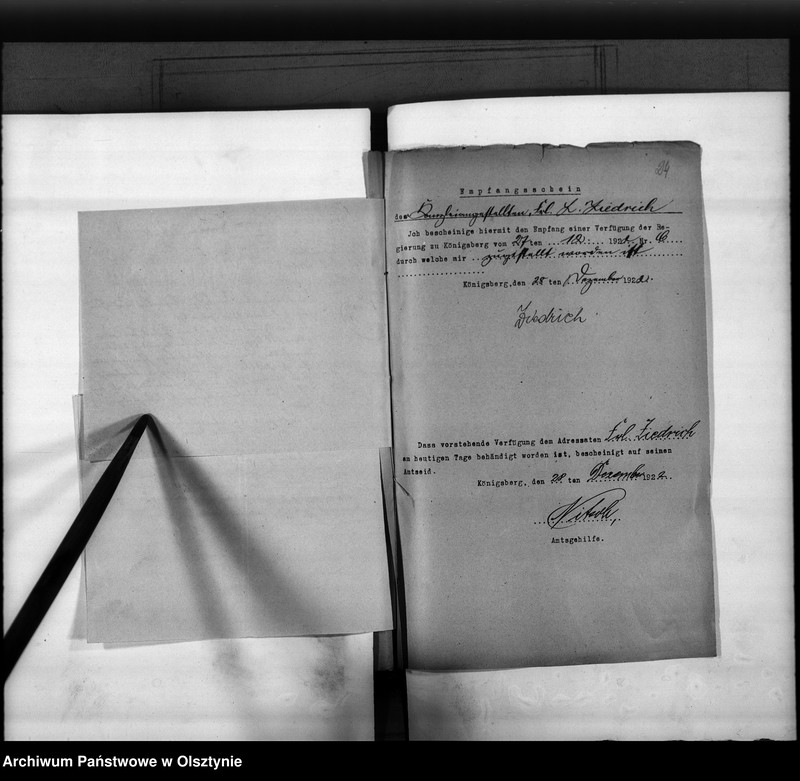 24
Empfangsschein
der Kanzleiangestellten, Frl. L. Ziedrich
Jch bescheinige hiermit den Empfang einer Verfügung der Re-
gierung zu Königsberg vom 27 ten ...12.... 192 Nr. C....
durch welche mir ...zugestellt worden ist
Königsberg, den 28 ten Dezember 1922.
Ziedrich
Dass vorstehende Verfügung dem Adressaten Frl. Ziedrich
am heutigen Tage behändigt worden ist, bescheinigt auf seinen
Amtseid.
Königsberg, den 28 ten Dezember 1922.
Amtsgehilfe.
Archiwum Państwowe w Olsztynie